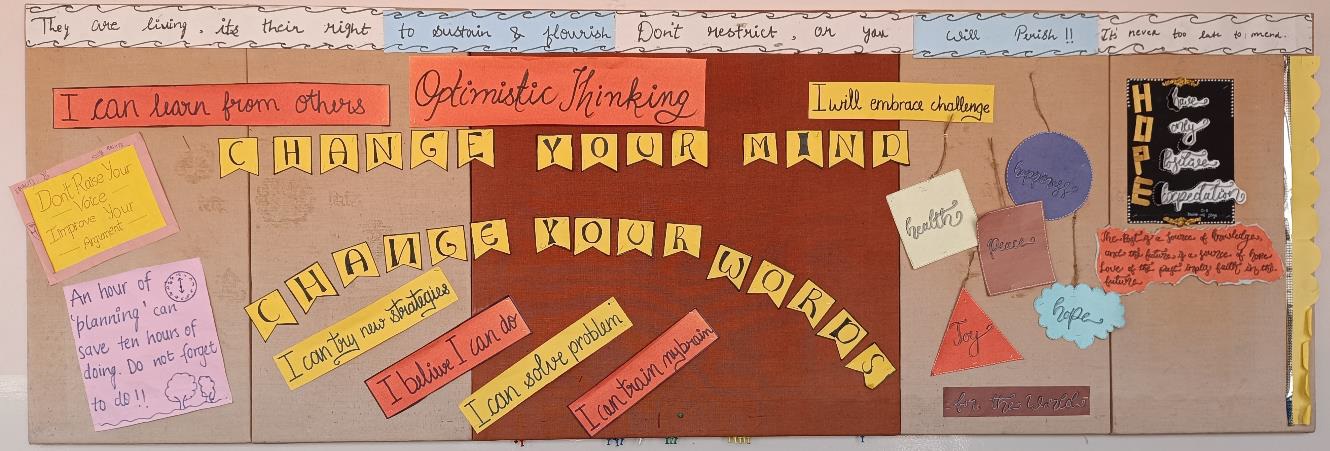 They are living, its their right to sustain & flourish Don't restrict, or you will Perish !! It's never too late to mend.
Optimistic Thinking
I can learn from others
I will embrace challenge
CHANGE YOUR MIND
CHANGE YOUR WORDS
Don't Raise Your
Voice
Improve Your
Argument
An hour of
'planning' can
save ten hours of
doing. Do not forget
to do!!
I can try new strategies
I belive I can do
I can solve problem
I can train my brain
health
peace
Joy
hope
for the World
HOPE
have
only
Positive
Expectation
The Past is a source of knowledge,
and the future is a source of hope
Love of the past imply faith in the
future